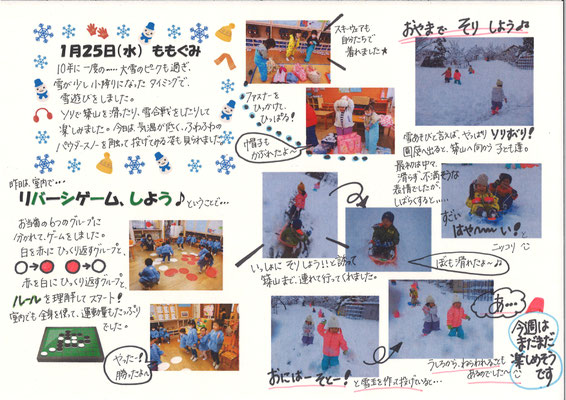 1月25日(水) ももぐみ
10年に一度の……大雪のピークも過ぎ、
雪が少し小降りになったタイミングで、
雪遊びをしました。
ソリで築山を滑ったり、雪合戦をしたりして
楽しみました。今日は、気温が低く、ふわふわの
パウダースノーを両手で投げてみる姿も見られました。
スキーウェアも
自分たちで
着れました★
ファスナーを
ひっかけて、
ひっぱる!
帽子も
かぶれたよ〜
おやまで そり しよう♪
雪あそびと言えば、やっぱりソリすべり!
園庭へ出ると、築山へ向かう子ども達。
最初は中々、
滑らず不満そうな
表情でしたが、
しばらくすると、…
すごい
はや〜〜い!
ニッコリ
昨日は、室内で…
リバーシゲーム、しよう♪ということで…
お当番の6つのグループに
分かれて、ゲームをしました。
白を赤にひっくり返すグループと、
赤を白にひっくり返すグループ。
ルールを理解してスタート!
室内でも全身を使って、運動量もたっぷり
でした。
やったー!
勝ったよ〜
いっしょに そりしよう!!と誘って
築山まで、連れて行ってくれました。
ぼくも滑れたよ〜♪
おにはーそとー!と雪玉を作って投げていると…
あ…
うしろから、ねらわれることも
あるのでした〜
今週は
まだまだ
楽しめそう
です